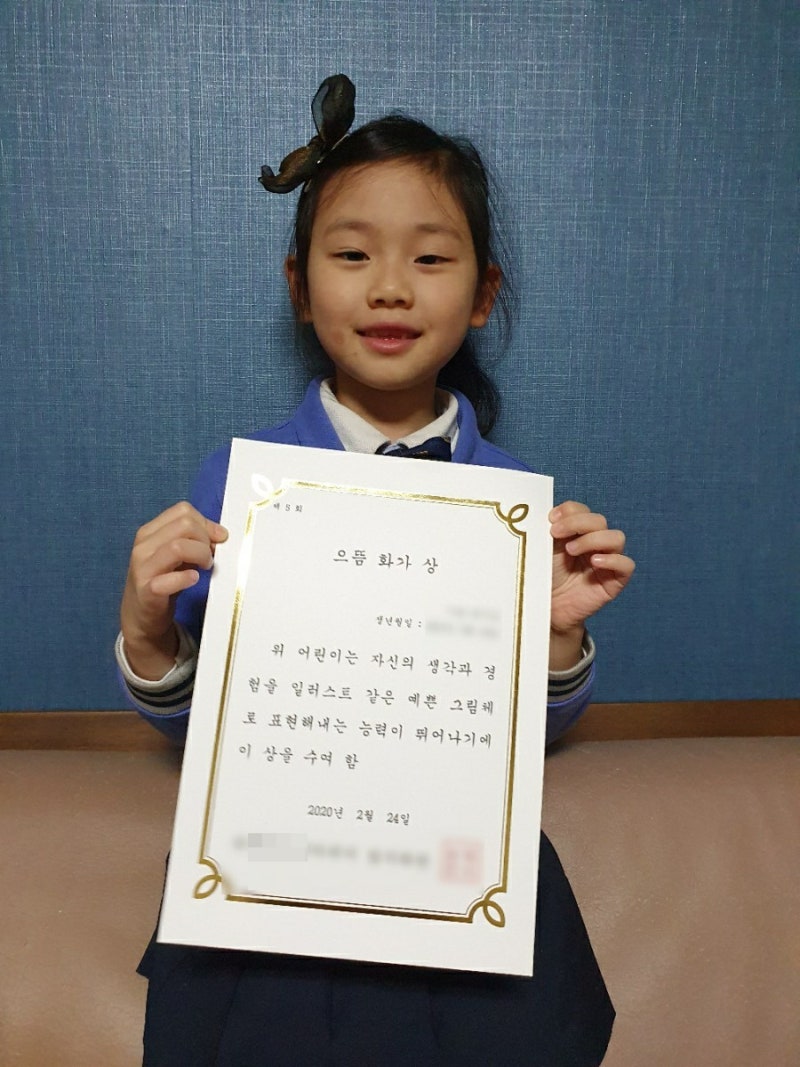 제 5 회
으뜸 화가 상
생년월일 :
위 어린이는 자신의 생각과 경
험을 일러스트 같은 예쁜 그림체
로 표현해내는 능력이 뛰어나기에
이 상을 수여 함
2020년 2월 24일